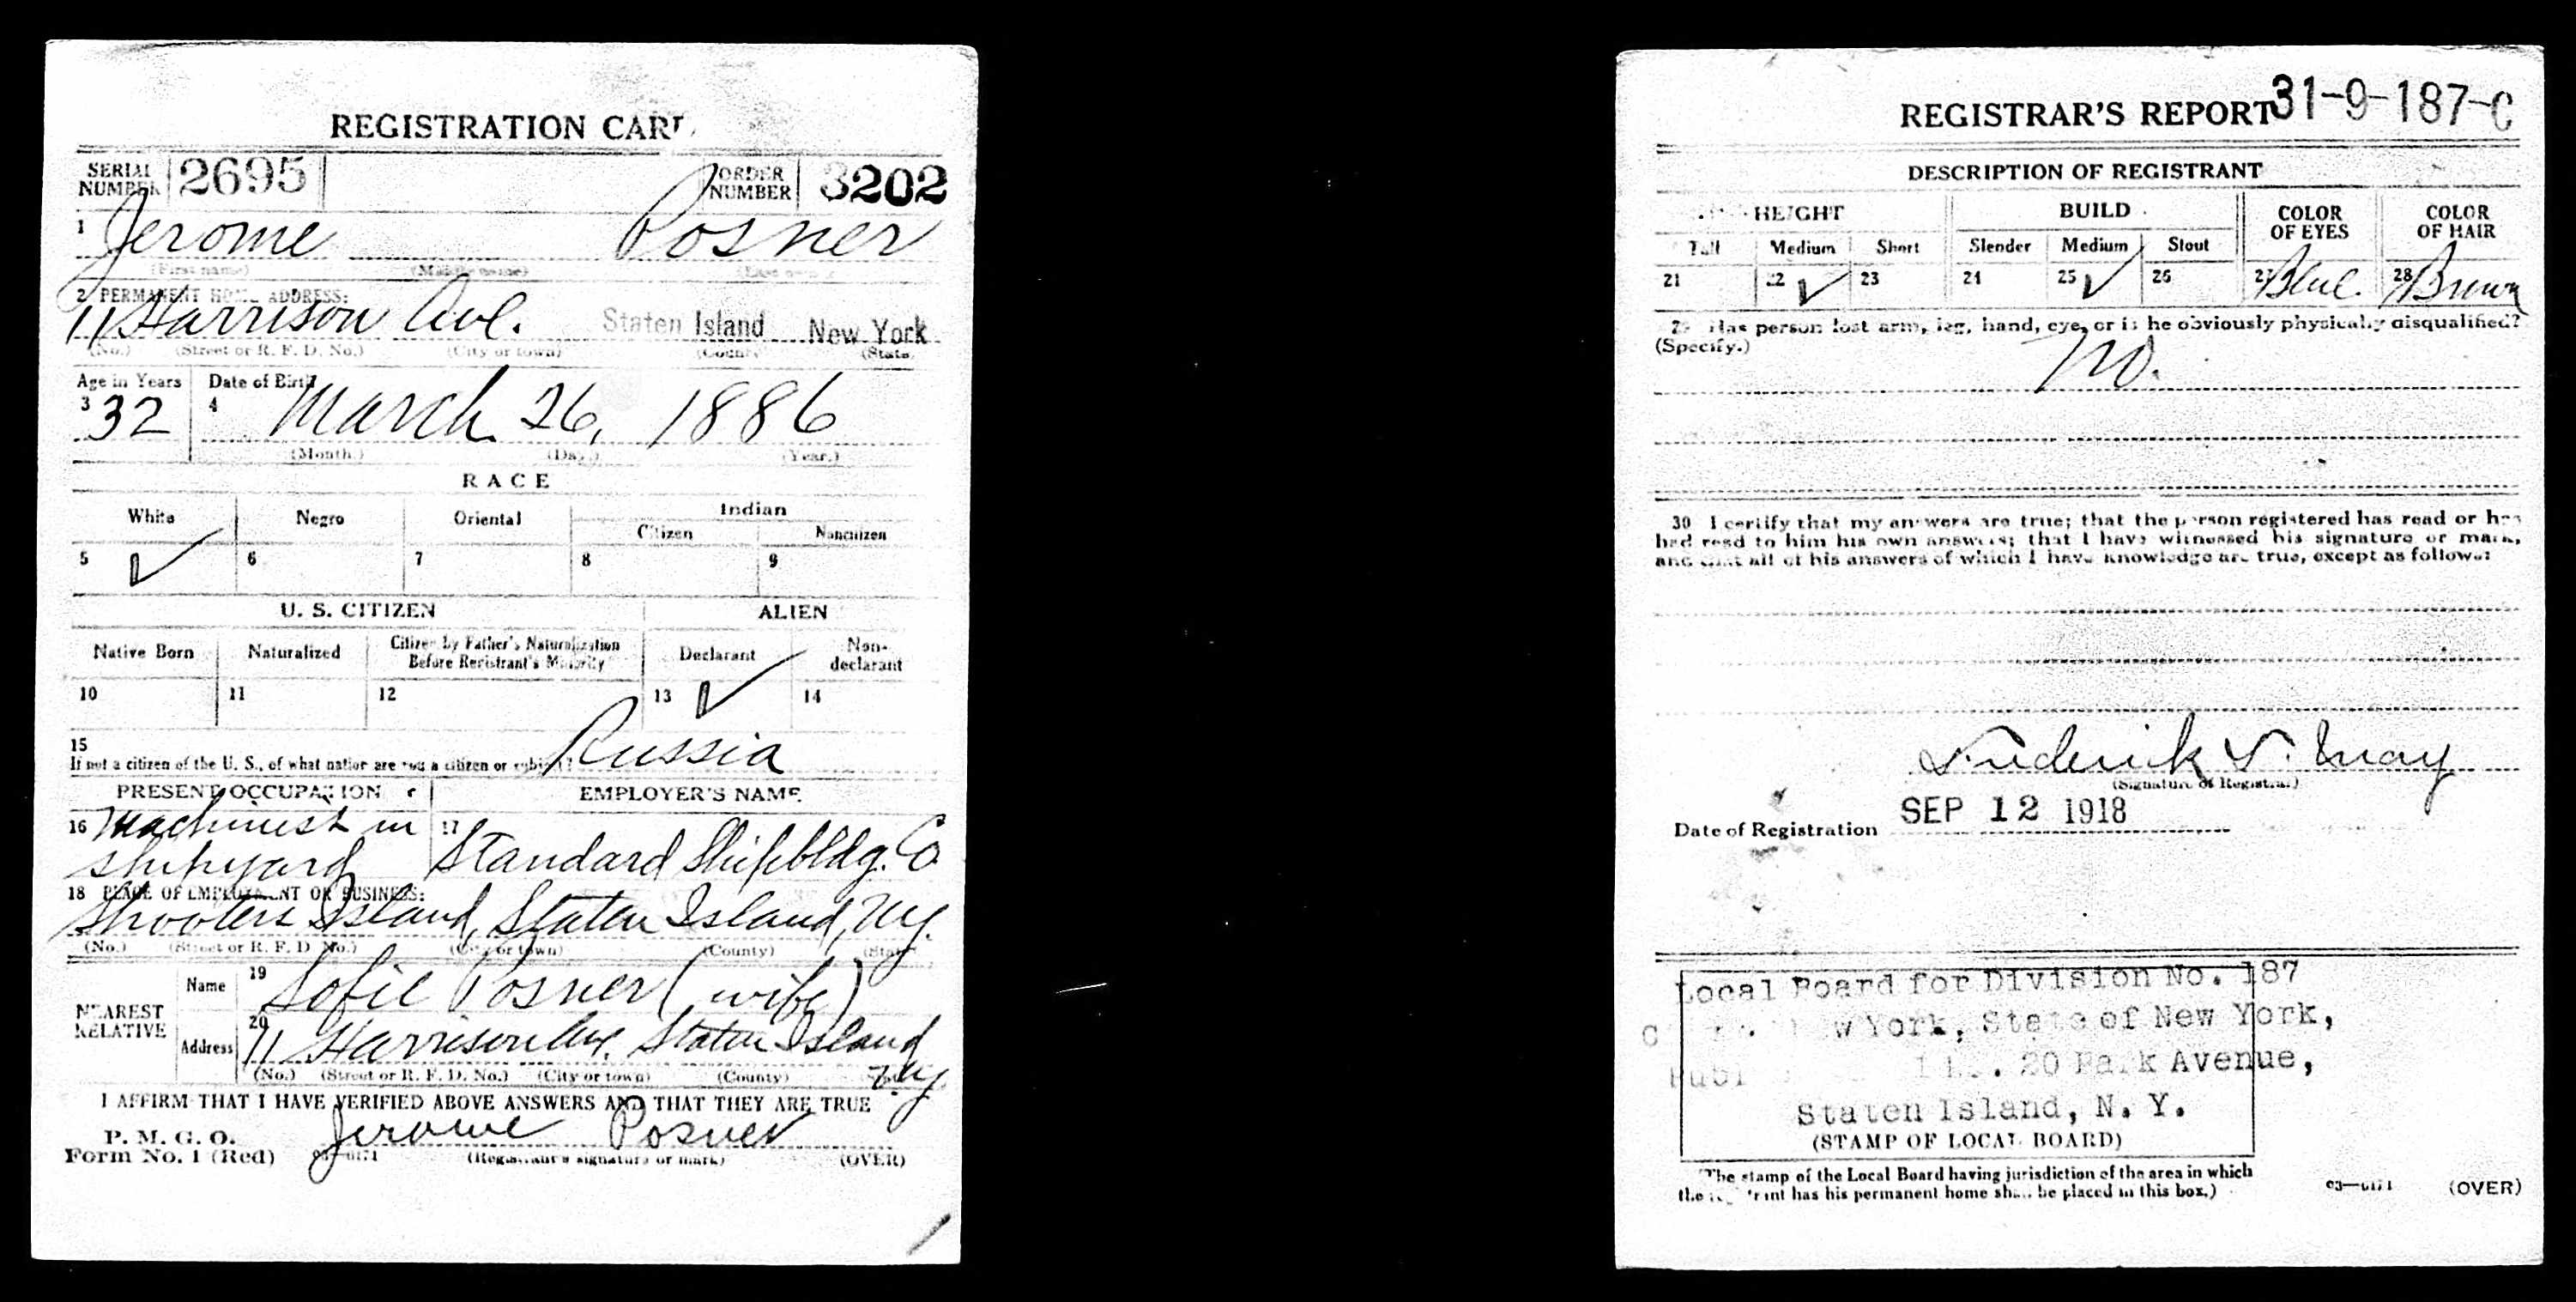 REGISTRATION CARD
SERIAL NUMBER 2695 ORDER NUMBER 3202
1 Jerome Posner
(First name) (Middle name) (Last name)
2 PERMANENT HOME ADDRESS:
11 Harrison Ave. Staten Island New York
(No.) (Street or R. F. D. No.) (City or town) (County) (State)
Age in Years Date of Birth
3 32 4 March 26, 1886
(Month.) (Day.) (Year.)
RACE
White Negro Oriental Indian
Citizen Noncitizen
5 ✓ 6 7 8 9
U. S. CITIZEN ALIEN
Native Born Naturalized Citizen by Father's Naturalization Before Registrant's Majority Declarant Non-declarant
10 11 12 13 ✓ 14
15 Russia
If not a citizen of the U. S., of what nation are you a citizen or subject?
PRESENT OCCUPATION EMPLOYER'S NAME
16 Machinist in 17
shipyard Standard Shipbldg. Co
18 PLACE OF EMPLOYMENT OR BUSINESS:
Shooters Island, Staten Island, N.Y.
(No.) (Street or R. F. D. No.) (City or town) (County) (State)
NEAREST RELATIVE Name 19 Sofie Posner (wife)
Address 20 11 Harrison Ave. Staten Island
(No.) (Street or R. F. D. No.) (City or town) (County) N.Y.
I AFFIRM THAT I HAVE VERIFIED ABOVE ANSWERS AND THAT THEY ARE TRUE
P. M. G. O.
Form No. 1 (Red) 03—6171 Jerome Posner
(Registrant's signature or mark) (OVER)
REGISTRAR'S REPORT 31-9-187-C
DESCRIPTION OF REGISTRANT
HEIGHT BUILD COLOR OF EYES COLOR OF HAIR
Tall Medium Short Slender Medium Stout
21 22 ✓ 23 24 25 ✓ 26 27 Blue. 28 Brown
29 Has person lost arm, leg, hand, eye, or is he obviously physically disqualified?
(Specify.) No.
30 I certify that my answers are true; that the person registered has read or has
had read to him his own answers; that I have witnessed his signature or mark,
and that all of his answers of which I have knowledge are true, except as follows:
Frederick May
(Signature of Registrar)
Date of Registration SEP 12 1918
Local Board for Division No. 187
New York, State of New York,
20 Park Avenue,
Staten Island, N. Y.
(STAMP OF LOCAL BOARD)
(The stamp of the Local Board having jurisdiction of the area in which
the registrant has his permanent home shall be placed in this box.)
03—6171 (OVER)